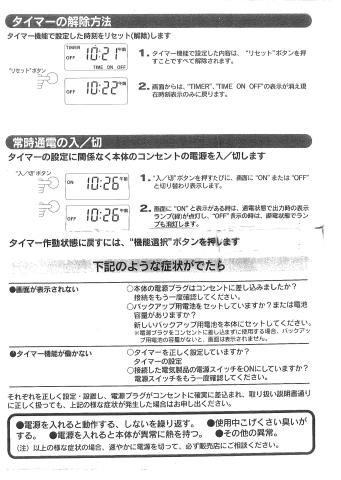 タイマーの解除方法
タイマー機能で設定した時刻をリセット(解除)します
TIMER
OFF 10:21 午前
TIME ON OFF
"リセット"ボタン
OFF 10:22 午前
1. タイマー機能で設定した内容は、"リセット"ボタンを押
すことですべて解除されます。
2. 画面からは、"TIMER"、"TIME ON OFF"の表示が消え現
在時刻表示のみに戻ります。
常時通電の入／切
タイマーの設定に関係なく本体のコンセントの電源を入／切します
"入／切"ボタン
ON 10:26 午前
OFF 10:26 午前
1. "入／切"ボタンを押すたびに、画面に "ON" または "OFF"
と切り替わり表示します。
2. 画面に "ON" と表示がある時は、通電状態で出力時の表示
ランプ(緑)が点灯し、"OFF"表示の時は、停電状態でラン
プも消灯します。
タイマー作動状態に戻すには、"機能選択"ボタンを押します
下記のような症状がでたら
●画面が表示されない
○本体の電源プラグはコンセントに差し込みましたか？
接続をもう一度確認してください。
○バックアップ用電池をセットしていますか？または電池
容量がありますか？
新しいバックアップ用電池を本体にセットしてください。
※電源プラグをコンセントに差し込まずに使用する場合、バックアッ
プ用電池の容量がないと、画面は表示されません。
タイマー機能が働かない
○タイマーを正しく設定していますか？
タイマーの設定
○接続した電気製品の電源スイッチをONにしていますか？
電源スイッチをもう一度確認してください。
それぞれを正しく設定・設置し、電源プラグがコンセントに確実に差込まれ、取り扱い説明書通り
に正しく扱っても、上記の様な症状が発生した場合はお申し出ください。
●電源を入れると動作する、しないを繰り返す。 ●使用中こげくさい臭いが
する。 ●電源を入れると本体が異常に熱を持つ。 ●その他の異常。
（注）以上の様な症状の場合、速やかに電源を切って、必ず販売店にご相談ください。